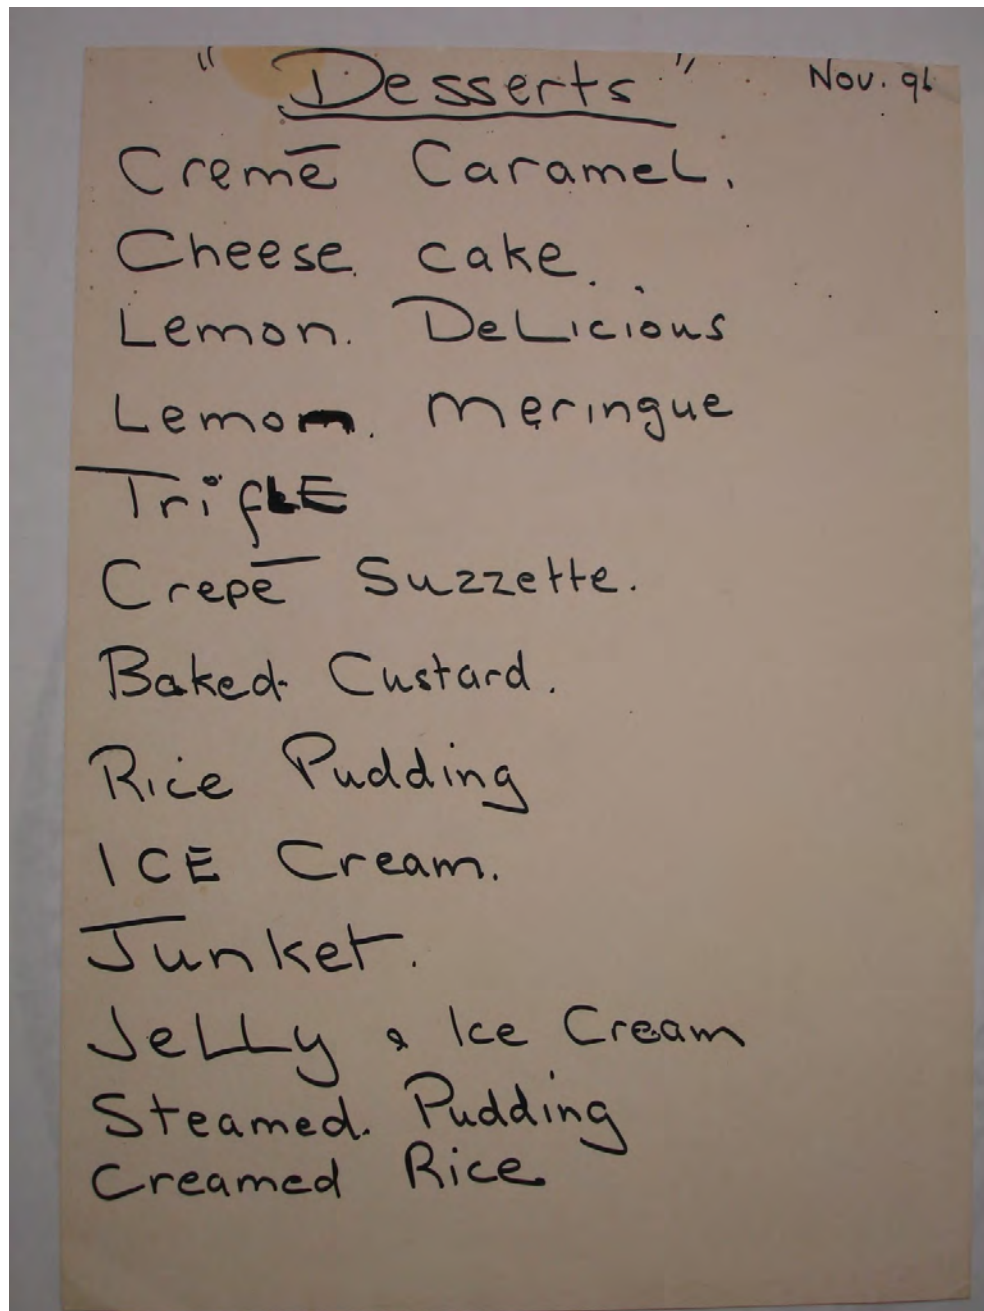 "Desserts" Nov. 96
Cremē Caramel.
Cheese cake.
Lemon. Delicious
Lemon. Meringue
TrifLE
Crepē Suzzette.
Baked Custard.
Rice Pudding
ICE Cream.
Junket.
JeLLy & Ice Cream
Steamed. Pudding
Creamed Rice